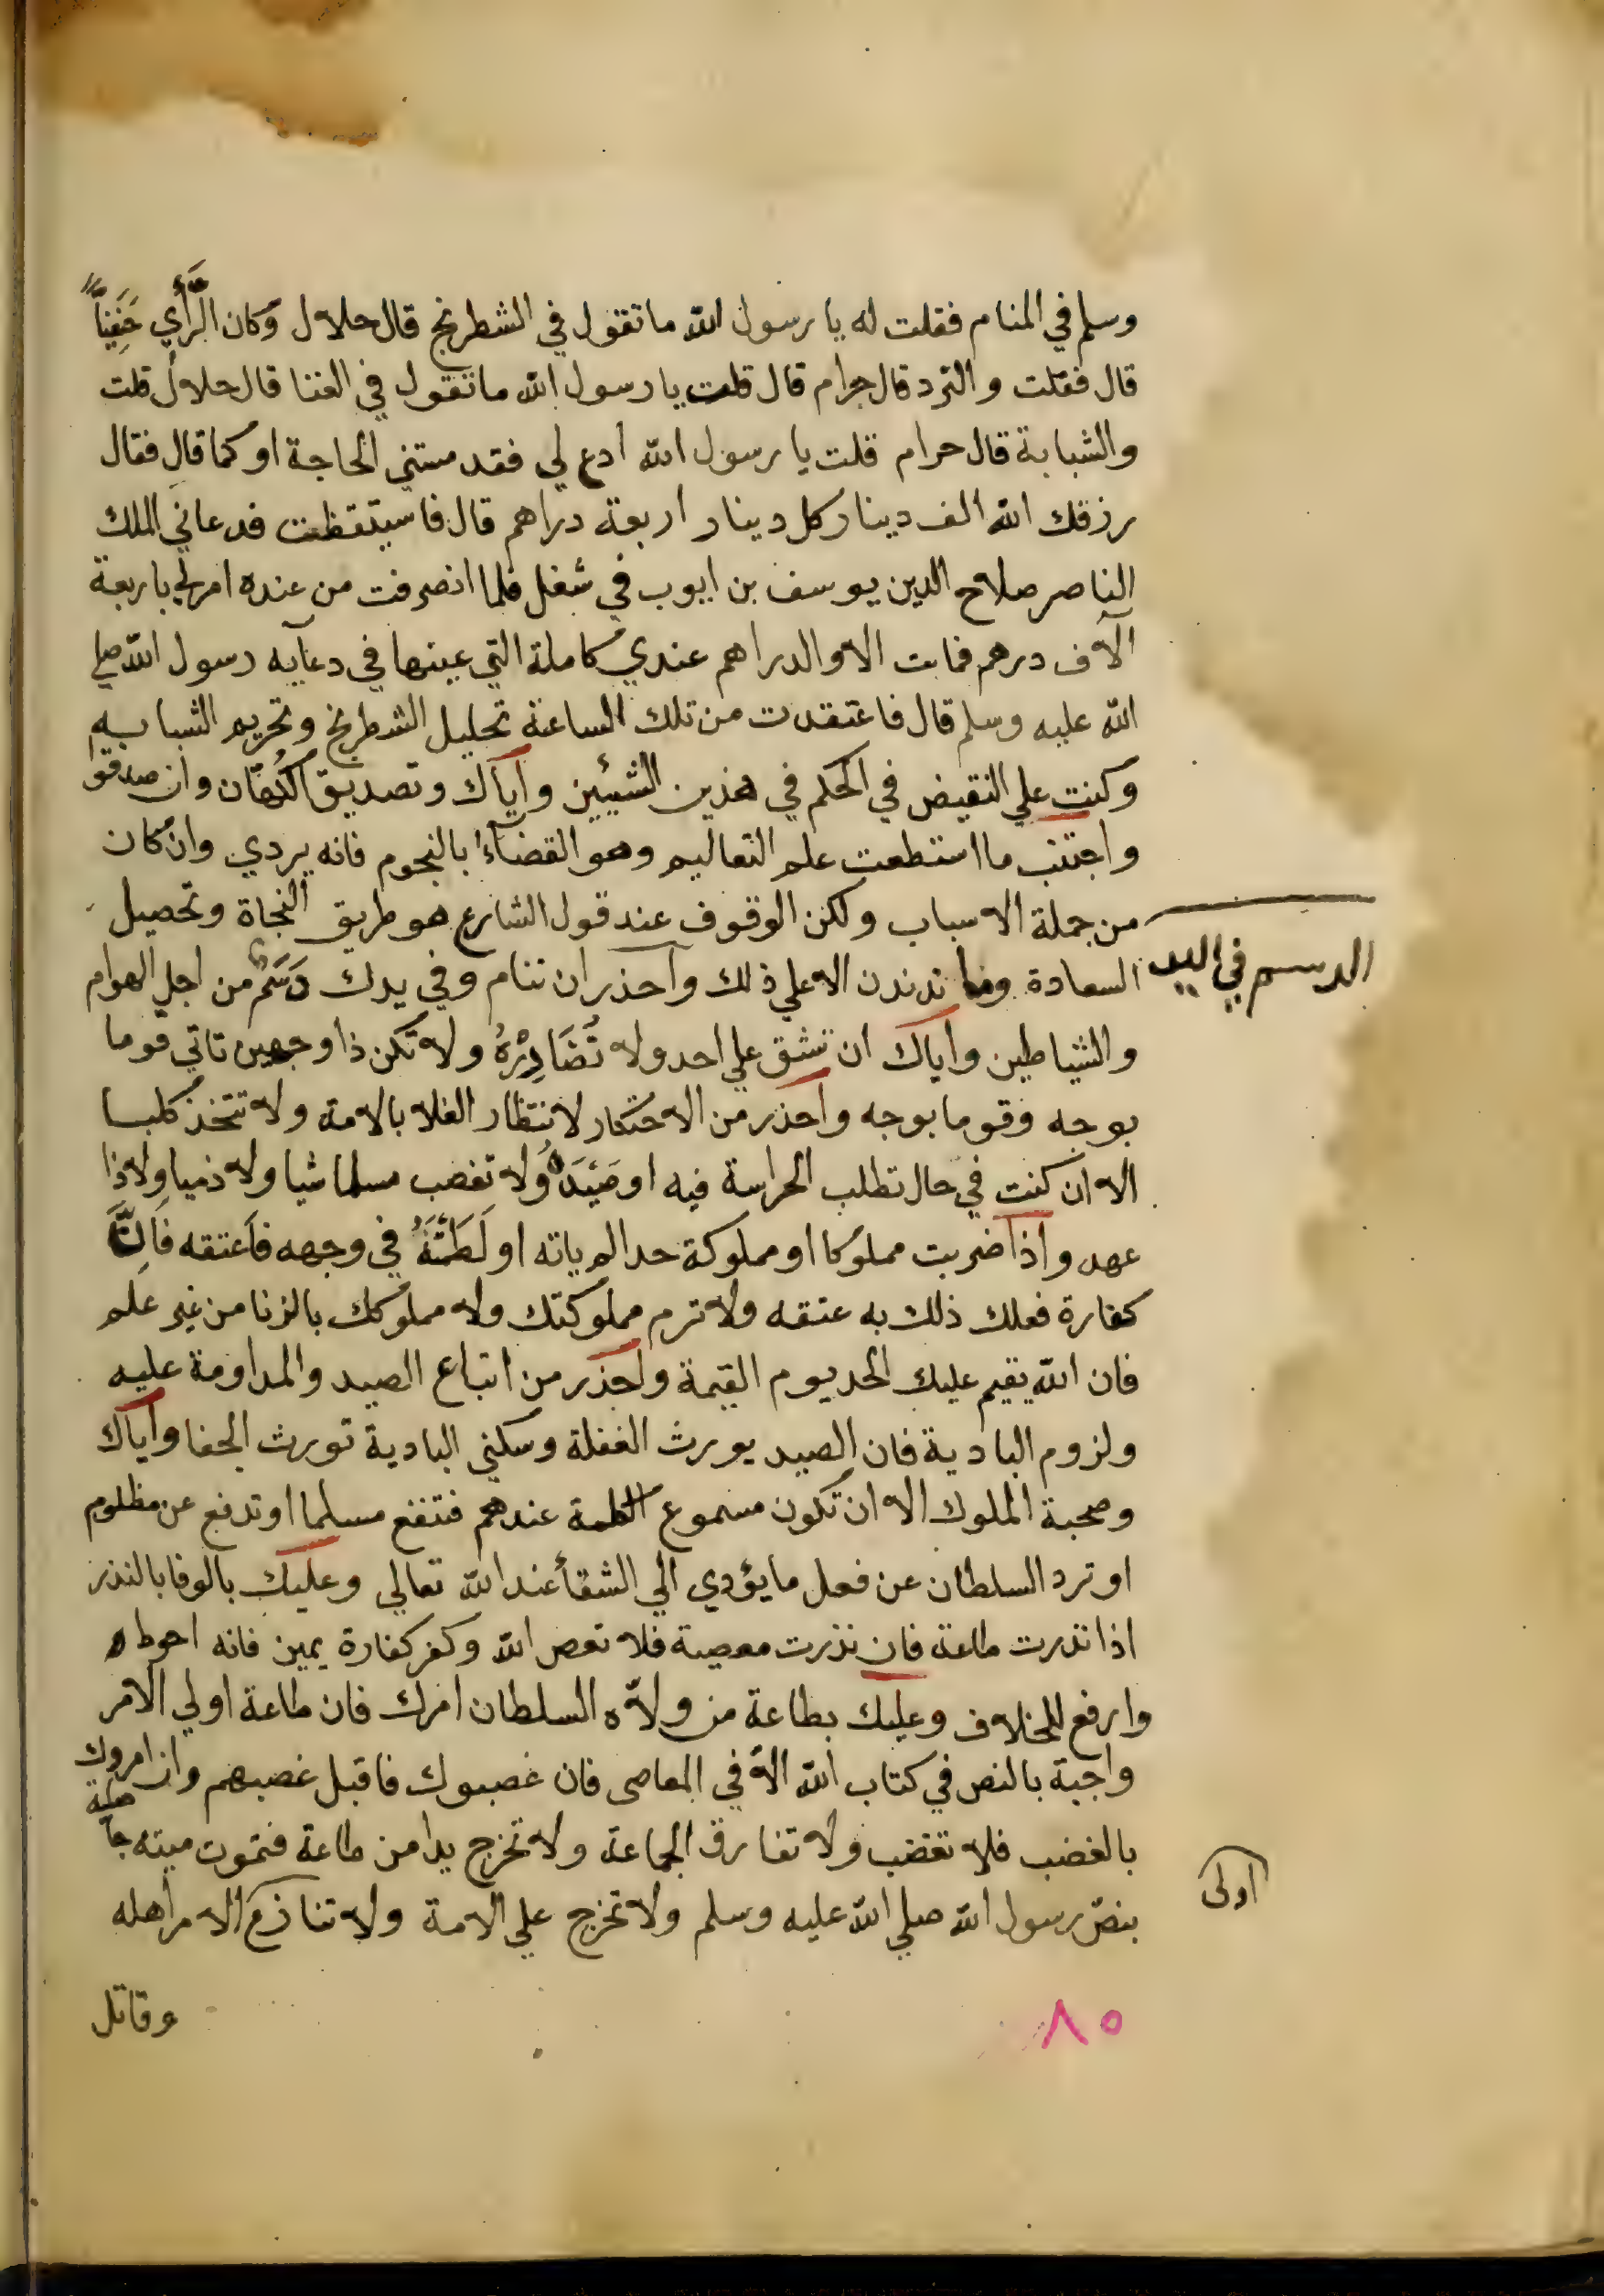 وسلم في المنام فقلت له يا رسول الله ما تقول في الشطرنج قال حلال وكان الرَّأي حَنِفيّاً
قال فقلت والنرد قال حرام قال قلت يا رسول الله ما تقول في الغنا قال حلال قلت
والشبابة قال حرام قلت يا رسول الله ادع لي فقد مستني الحاجة او كما قال فقال
رزقك الله الف دينار كل دينار اربعة دراهم قال فاستيقظت فدعاني الملك
الناصر صلاح الدين يوسف بن ايوب في شغل فلما انصرفت من عنده امر لي باربعة
آلاف درهم فما بت الا والدراهم عندي كاملة التي عينها في دعآيه رسول الله صلي
الله عليه وسلم قال فاعتقدت من تلك الساعة تحليل الشطرنج وتحريم الشبابه
وكنت علي النقيض في الحكم في هذين الشيئين وآياك وتصديق الكُهّان وان صدقوا
واجتنب ما استطعت علم التعاليم وهو القضآء بالنجوم فانه يردي وان كان
من جملة الاسباب ولكن الوقوف عند قول الشارع هو طريق النجاة وتحصيل
الدسم في اليد
السعادة وما ندندن الا علي ذلك وآحذر ان تنام وفي يدك دَسَمٌ من اجل الهوام
والشياطين واياك ان تشق علي احد ولا تُضَادِرْهُ ولا تكن ذا وجهين تاتي قوما
بوجه وقوما بوجه واحذر من الاحتكار لانتظار الغلا بالامة ولا تتخذ كلبا
الا ان كنت في حال تطلب الحراسة فيه او صَيْدَهُ ولا تغصب مسلما شيا ولا ذميا ولا ذا
عهد واذا ضربت مملوكا او مملوكة حدا لم ياته او لَطَمْتَهُ في وجهه فاعتقه فَاِنَّ
كفارة فعلك ذلك به عتقه ولا ترم مملوكتك ولا مملوكك بالزنا من غير علم
فان الله يقيم عليك الحد يوم القيمة واحذر من اتباع الصيد والمداومة عليه
ولزوم البادية فان الصيد يورث الغفلة وسكني البادية تورث الجفا وآياك
وصحبة الملوك الا ان تكون مسموع الكلمة عندهم فتنفع مسلما او تدفع عن مظلوم
او ترد السلطان عن فعل ما يؤدي الي الشقأ عند الله تعالي وعليك بالوفا بالنذر
اذا نذرت طاعة فان نذرت معصية فلا تعص الله وكفر كفارة يمين فانه احوط
وارفع للخلاف وعليك بطاعة من ولاّه السلطان امرك فان طاعة اولي الامر
واجبة بالنص في كتاب الله الا في المعاصي فان غصبوك فاقبل غصبهم وان امروك
بالغضب فلا تغضب ولا تفارق الجماعة ولا تخرج يدا من طاعة فتموت ميته جاهلية
اولى
بنصّ رسول الله صلي الله عليه وسلم ولا تخرج علي الامة ولا تنازع الامر اهله
وقاتل
٨٥